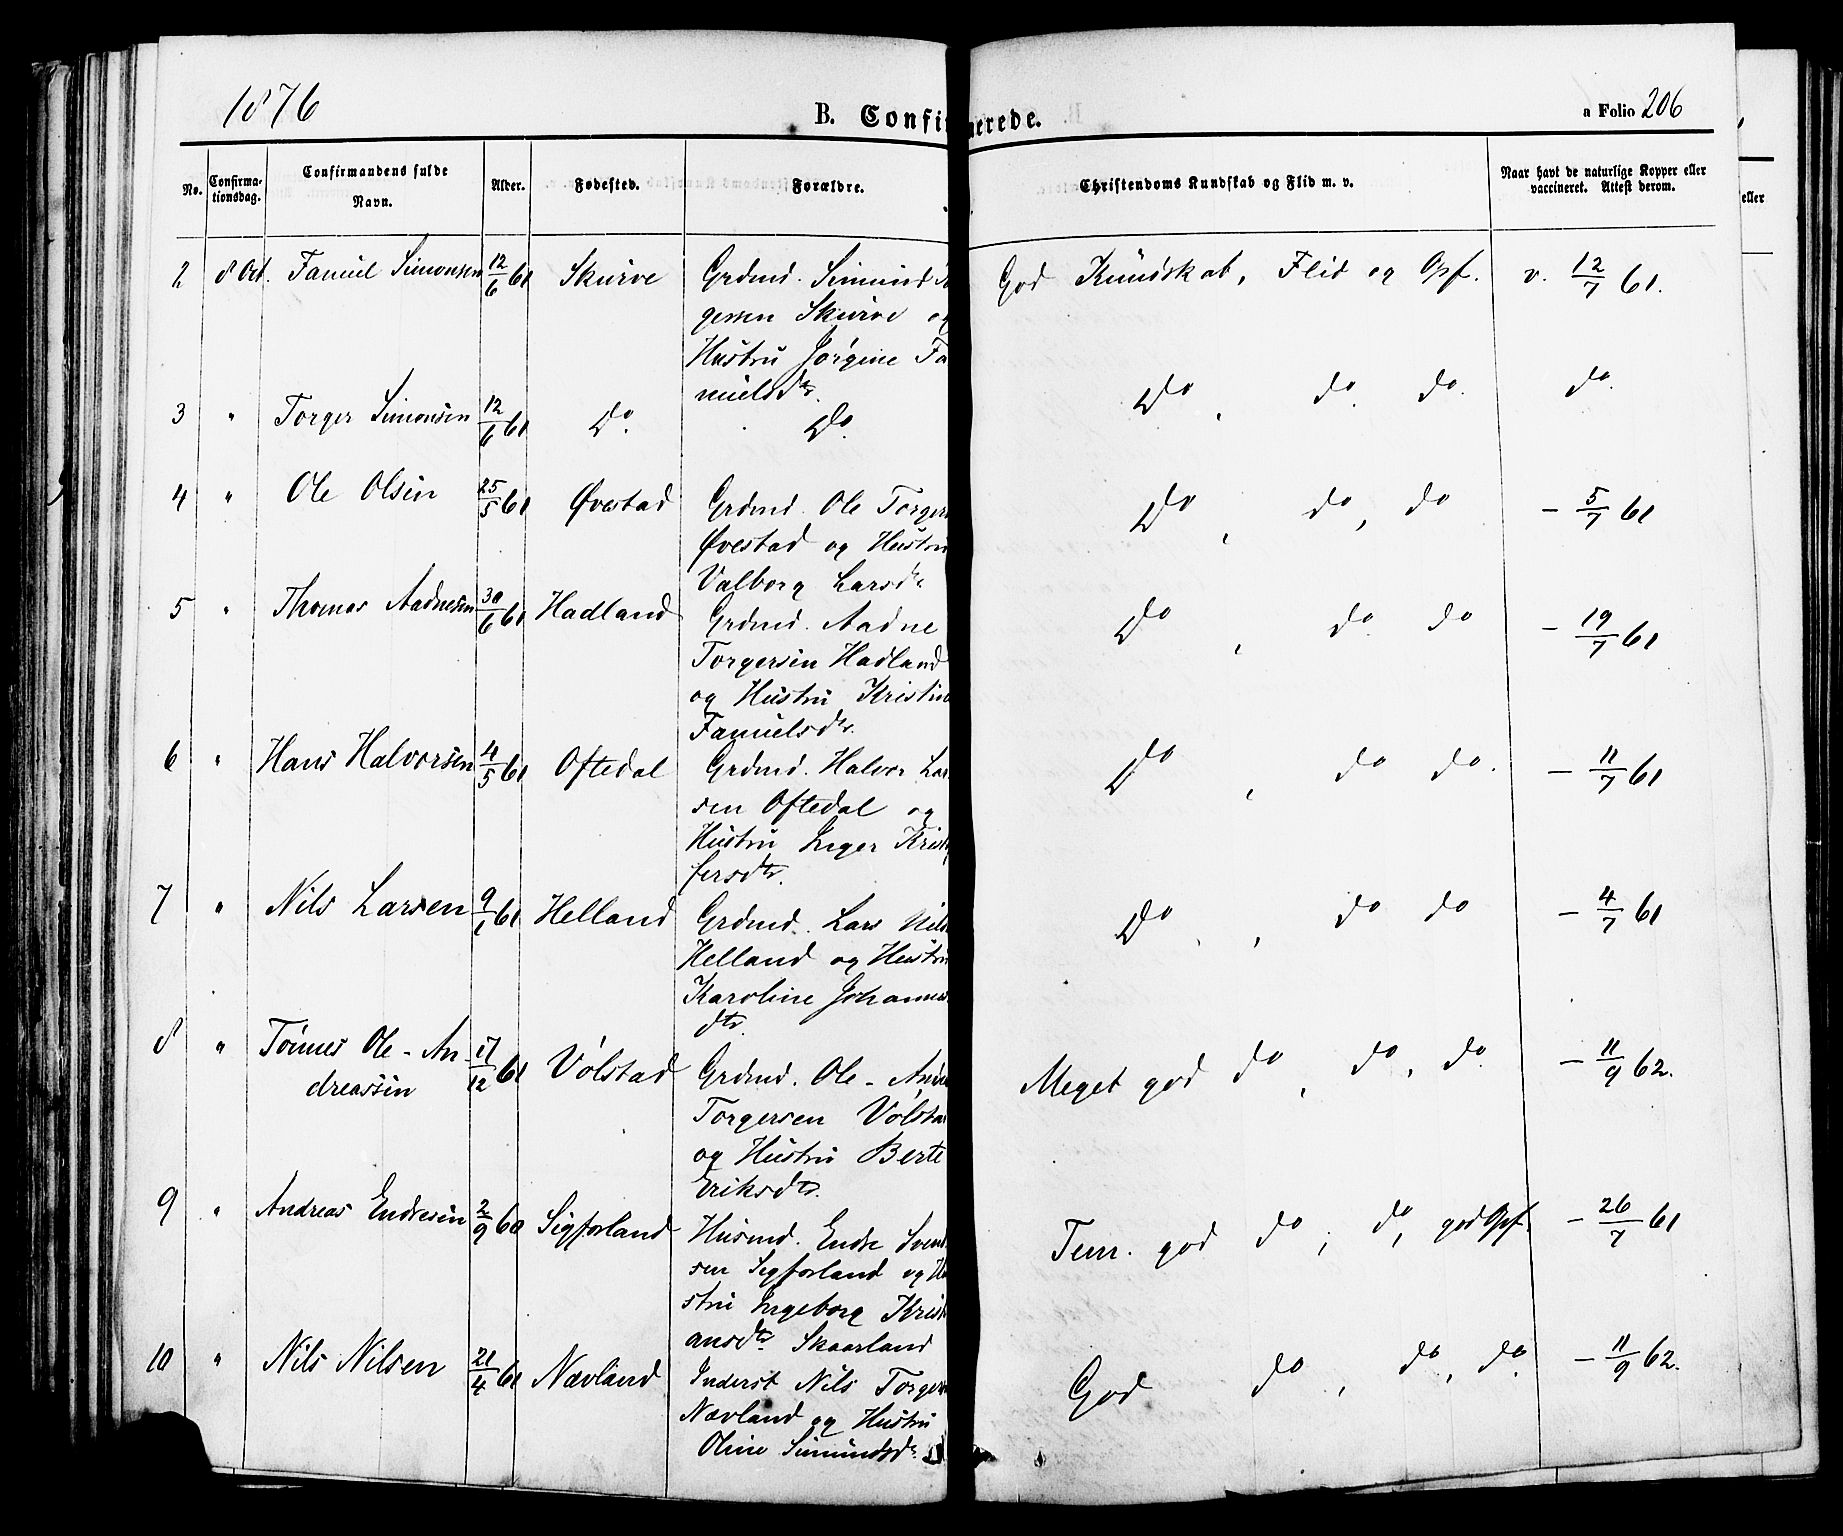 1876
B. Confirmerede.
a Folio 206
No.
Confirma-
tionsdag.
Confirmandens fulde
Navn.
Alder.
Fødested.
Forældre.
Christendoms Kundskab og Flid m. v.
Naar havt de naturlige Kopper eller
vaccineret. Attest derom.
eller
2 8 Oct. Samuel Simonsen 12/6 61 Skurve Grdmd. Simund
gersen Skurve og
Hustru Jørgine Sa
muelsdtr.
God Kundskab, Flid og Opf. v. 12/7 61.
3 " Torger Simonsen 12/6 61 Do. Do.
Do, do. do. do.
4 " Ole Olsen 25/5 61 Øvestad Grdmd. Ole Torgers
Øvestad og Hustru
Valborg Larsdtr
Do, do, do - 5/7 61
5 " Thomas Aadnesen 30/6 61 Hadland Grdmd. Aadne
Torgersen Hadland
og Hustru Kristine
Samuelsdtr.
Do, do. do - 19/7 61
6 " Hans Halvorsen 4/5 61 Oftedal Grdmd. Halvor Lar
sen Oftedal og
Hustru Inger Krist
fersdtr.
Do, do do. - 11/7 61
7 " Nils Larsen 9/1 61 Helland Grdmd. Lars Nils
Helland og Hustru
Karoline Johannes
dtr.
Do, do do - 4/7 61
8 " Tønnes Ole-An-
dreassen 17/12 61 Vølstad Grdmd. Ole-Andr
Torgersen Vølstad
og Hustru Berte
Eriksdtr.
Meget god do, do, do. - 11/9 62.
9 " Andreas Endresen 2/9 60 Sigforland Husmd. Endre Svend
sen Sigforland og Hu
stru Ingeborg Kristi
ansdtr. Skaarland
Tem. god do, do, god Opf. - 26/7 61
10 " Nils Nilsen 21/4 61 Nævland Inderst Nils Torgers
Nævland og Hustru
Oline Simundsdtr
God do, do, do. - 11/9 62.